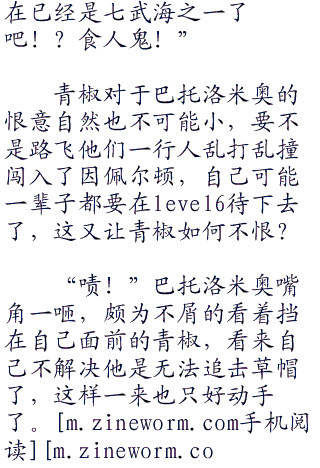 在已经是七武海之一了
吧！？食人鬼！”
青椒对于巴托洛米奥的
恨意自然也不可能小，要不
是路飞他们一行人乱打乱撞
闯入了因佩尔顿，自己可能
一辈子都要在level6待下去
了，这又让青椒如何不恨？
“啧！”巴托洛米奥嘴
角一咂，颇为不屑的看着挡
在自己面前的青椒，看来自
己不解决他是无法追击草帽
了，这样一来也只好动手
了。[m.zineworm.com手机阅
读][m.zineworm.co